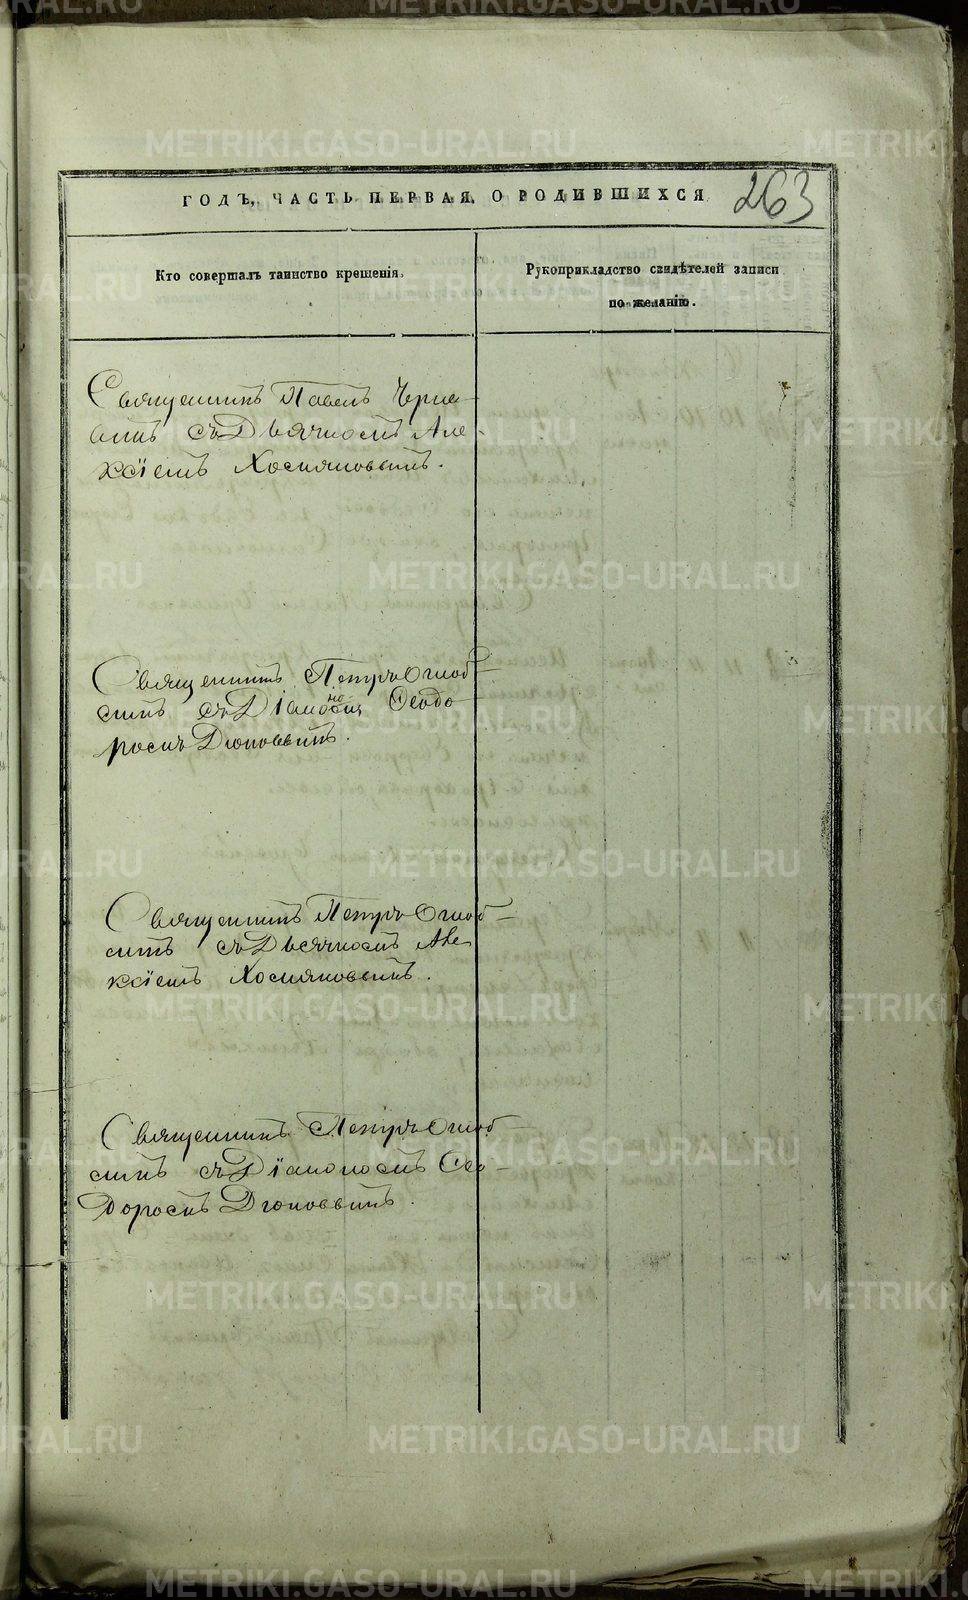 ГОДЪ, ЧАСТЬ ПЕРВАЯ, О РОДИВШИХСЯ
263
Кто совершалъ таинство крещенія.
Рукоприкладство свидѣтелей записи
по желанію.
Священникъ Павелъ
съ Дьячкомъ Але-
ксіемъ Хосияновымъ.
Священникъ Петръ Оглоб-
линъ съ Діакономъ Ѳеодо
ромъ Дягоновымъ.
Священникъ Петръ Оглоб-
линъ съ Дьячкомъ Але
ксіемъ Хосияновымъ.
Священникъ Петръ Оглоб-
линъ съ Діакономъ Ѳео-
доромъ Дягоновымъ.
METRIKI.GASO-URAL.RU